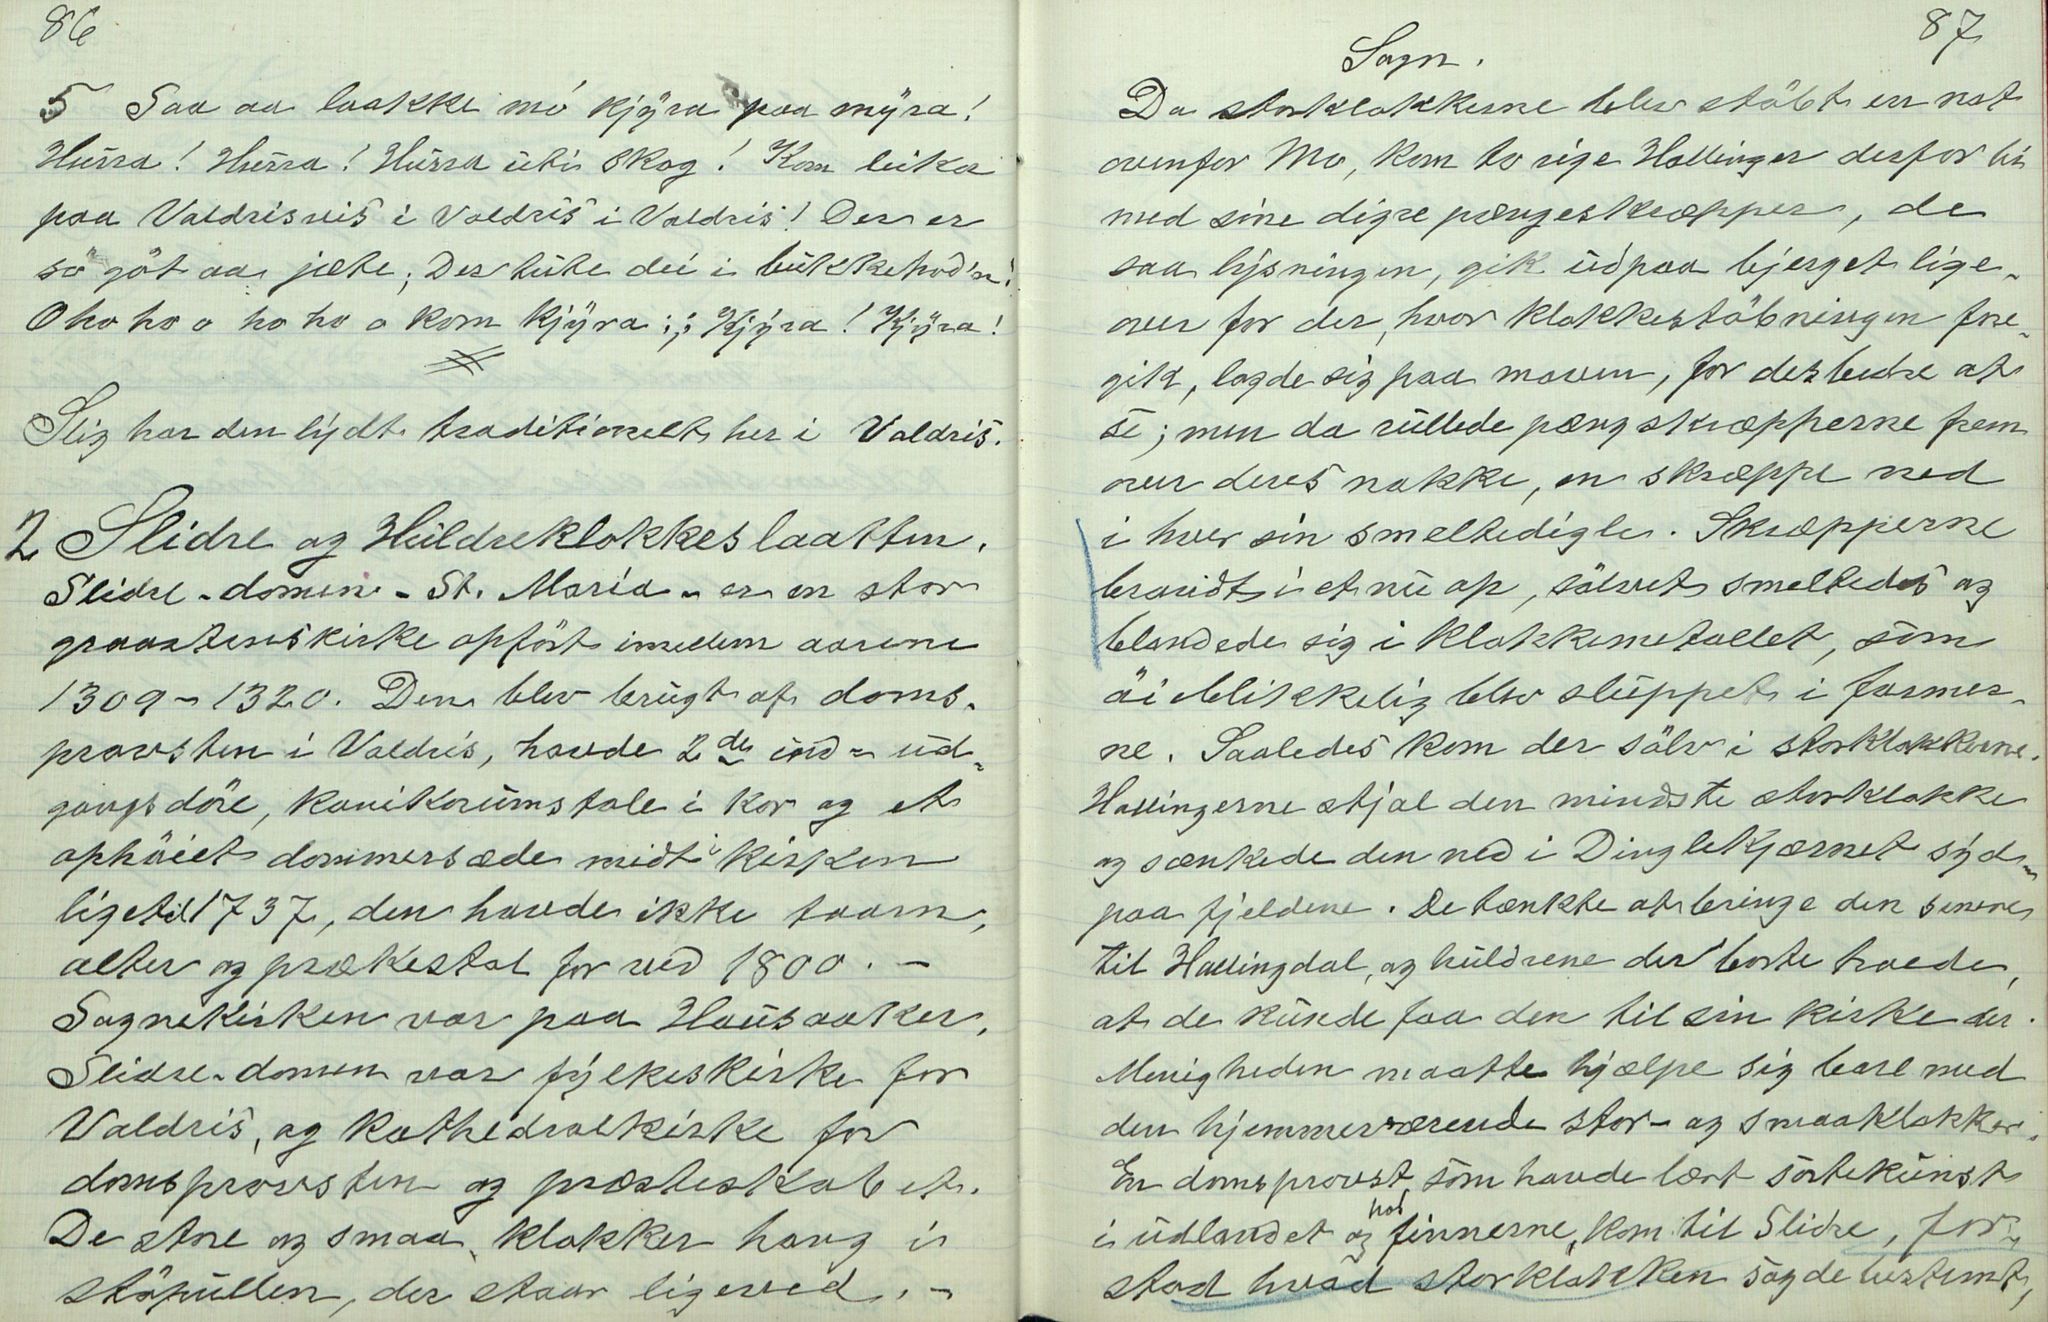 86
5 Saa aa laakke mó kjÿra paa mÿra!
Hurra! Hurra! Hurra uti skog! Kom leika
paa Valdrisvis i Valdris i Valdris! Der er
sö göt aa jæte; Der tute dei i bukkehod'n!
Ohoho o ho ho o kom kjÿra ;; Kjÿra! Kjÿra!
Slig har den lydt traditionelt her i Valdris.
2 Slidre og Huldreklokkeslaatten.
Slidre-domen - St. Maria - er en stor
graastenskirke opfört imellem aarene
1309-1320. Den blev brugt af doms-
provsten i Valdris, havde 2de ind- ud-
gangsdöre, kanikorumstole i kor og et
ophöiet dommersæde midt i kirken
ligetil 1737, den havde ikke taarn,
alter og prækestol för ved 1800. -
Sognekirken var paa Hausaaker.
Slidre-domen var fylkeskirke for
Valdris, og kathedralkirke for
domsprovsten og præsteskabet.
De store og smaa klokker hang i
stöpullen, der staar ligeved. -
87
Sagn.
Da storklokkerne blev stöbt en nat
ovenfor Mo, kom to rige Hallinger derforbi
med sine digre pængeskræpper, de
saa lysningen, gik udpaa bjerget lige-
over for der, hvor klokkestöbningen fore-
gik, lagde sig paa maven, for des bedre at
se; men da rullede pængskræpperne frem
over deres nakke, en skræppe ned
i hver sin smeltedigle. Skræpperne
brandt i et nu op, sölvet smeltedes og
blandede sig i klokkemetallet, som
öiblikkelig blev sluppet i former-
ne. Saaledes kom der sölv i storklokkerne.
Hallingerne stjal den mindste storklokke
og sænkede den ned i Dinglekjærnet syd-
paa fjeldene. De tænkte at bringe den senere
til Hallingdal, og huldrene der borte troede,
at de kunde faa den til sin kirke der.
Menigheden maatte hjælpe sig bare med
den hjemmeværende stor- og smaaklokker.
En domsprovst, som havde lært sortekunst
i udlandet og hos finnerne, kom til Slidre, for-
stod hvad storklokken sagde bestemt,